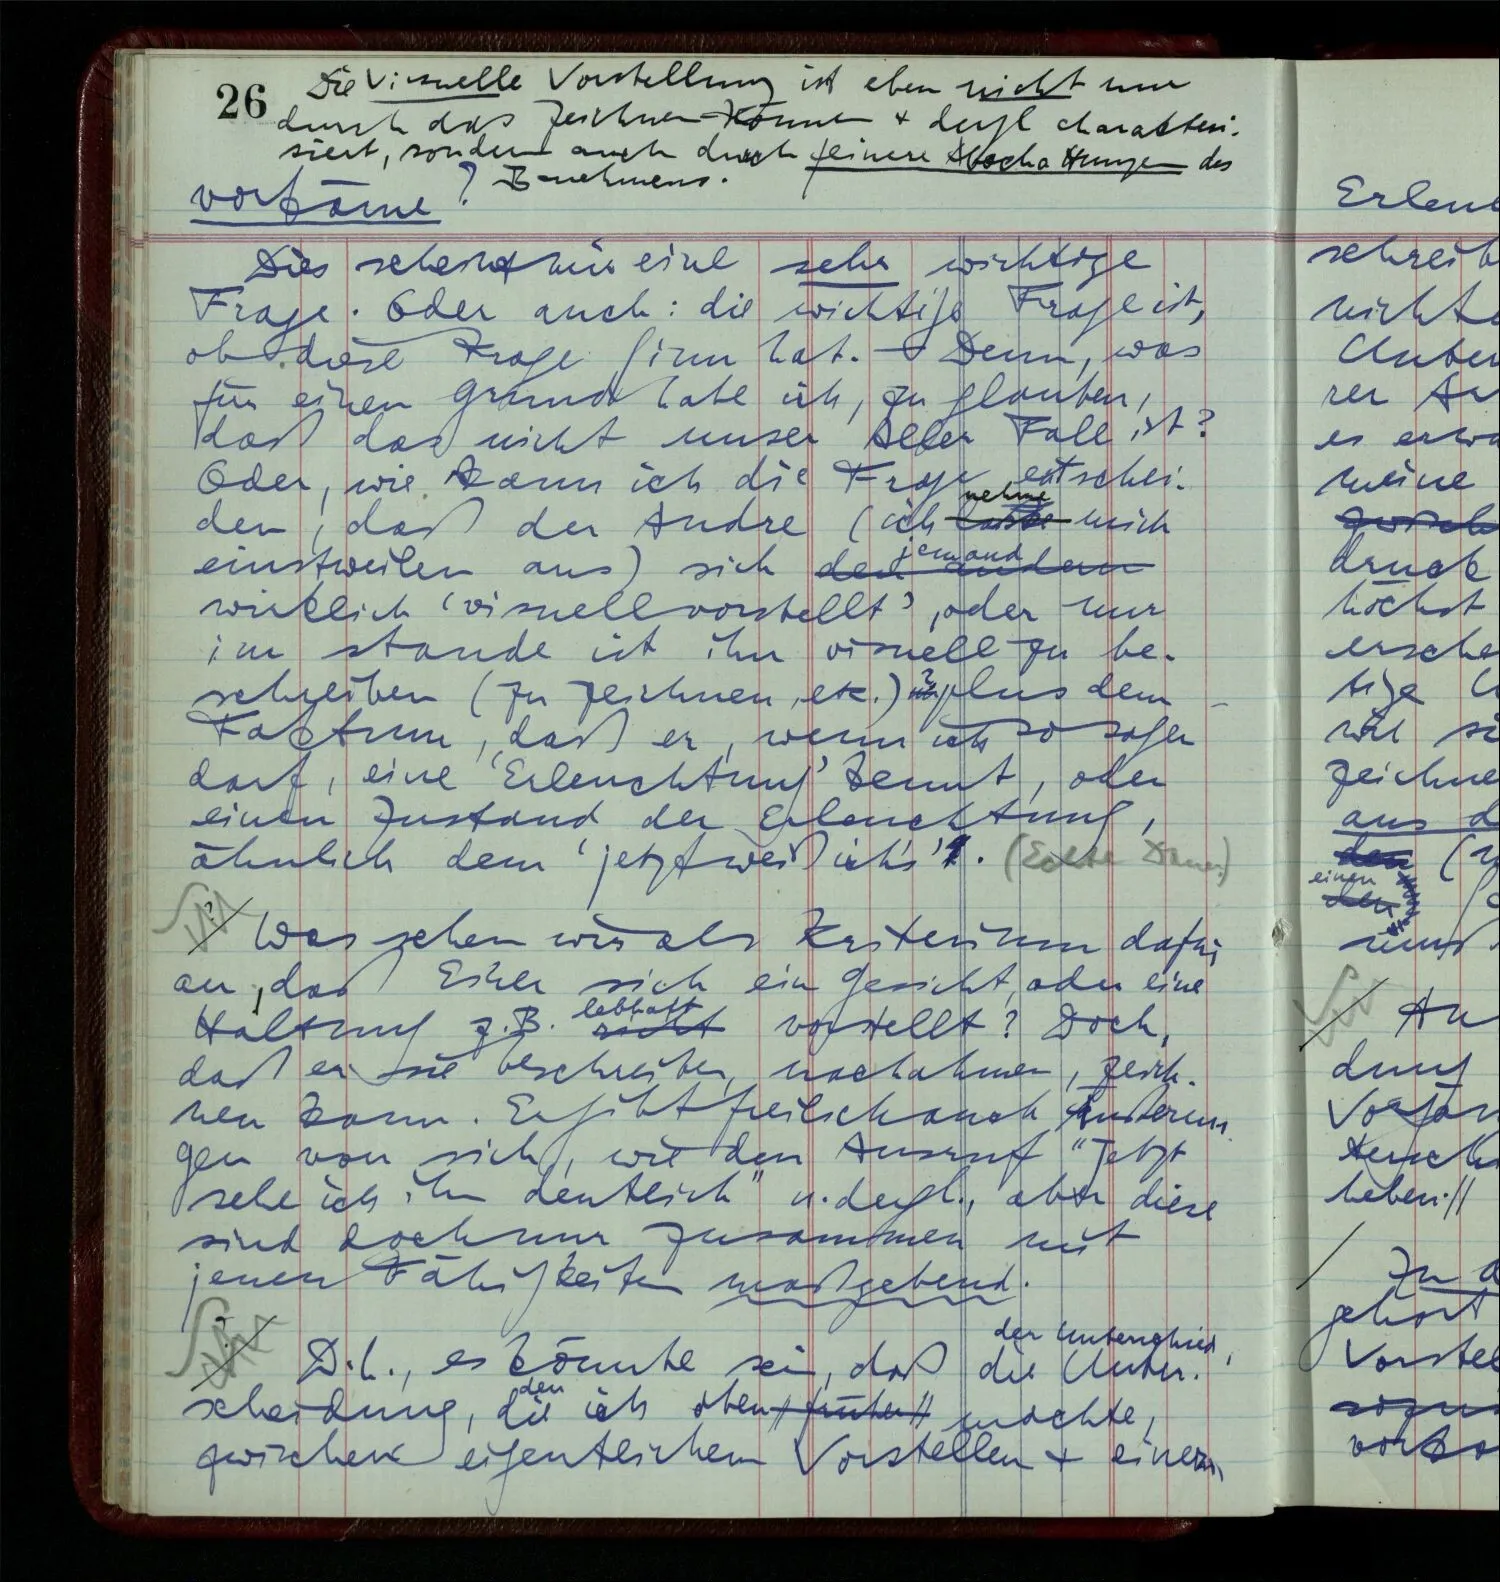 26
Die visuelle Vorstellung ist eben nicht nur
durch das Zeichnen-Können + dergl charakteri-
siert, sondern auch durch feinere Abschattungen des
Benehmens.
vorkäme?
Dies scheint mir eine sehr wichtige
Frage. Oder auch: die wichtige Frage ist,
ob diese Frage Sinn hat. – Denn, was
für einen Grund habe ich, zu glauben,
daß das nicht unser Aller Fall ist?
Oder, wie kann ich die Frage entschei-
nehme
den, daß der Andre (ich lasse mich
jemand
einstweilen aus) sich den andern
wirklich 'visuell vorstellt', oder nur
im stande ist ihn visuell zu be-
schreiben (zu zeichnen, etc.) plus dem
Faktum, daß er, wenn ich so sagen
darf, eine 'Erleuchtung' kennt, oder
einen Zustand der Erleuchtung,
ähnlich dem 'jetzt weiß ich's'. (Echte Dauer)
Was sehen wir als Kriterium dafür
an, daß Einer sich ein Gesicht, oder eine
lebhaft
Haltung z.B. vorstellt? Doch,
daß er sie beschreiben, nachahmen, zeich-
nen kann. Er gibt freilich auch Äußerun-
gen von sich, wie den Ausruf "Jetzt
sehe ich ihn deutlich" u. dergl., aber diese
sind doch nur zusammen mit
jenen Fähigkeiten maßgebend.
der Unterschied,
D.h., es könnte sein, daß die Unter-
den
scheidung, die ich oben // früher // machte,
zwischen eigentlichem Vorstellen + einem
Erleu
schreib
nicht
Unter
rer
es erwa
meine
zwisch
druck
höchst
ersche
tige
wil si
zeichne
aus d
den
einen
den
muß
An
dung
Vorgän
heben. //
/ Zu d
gehört
Vorstel